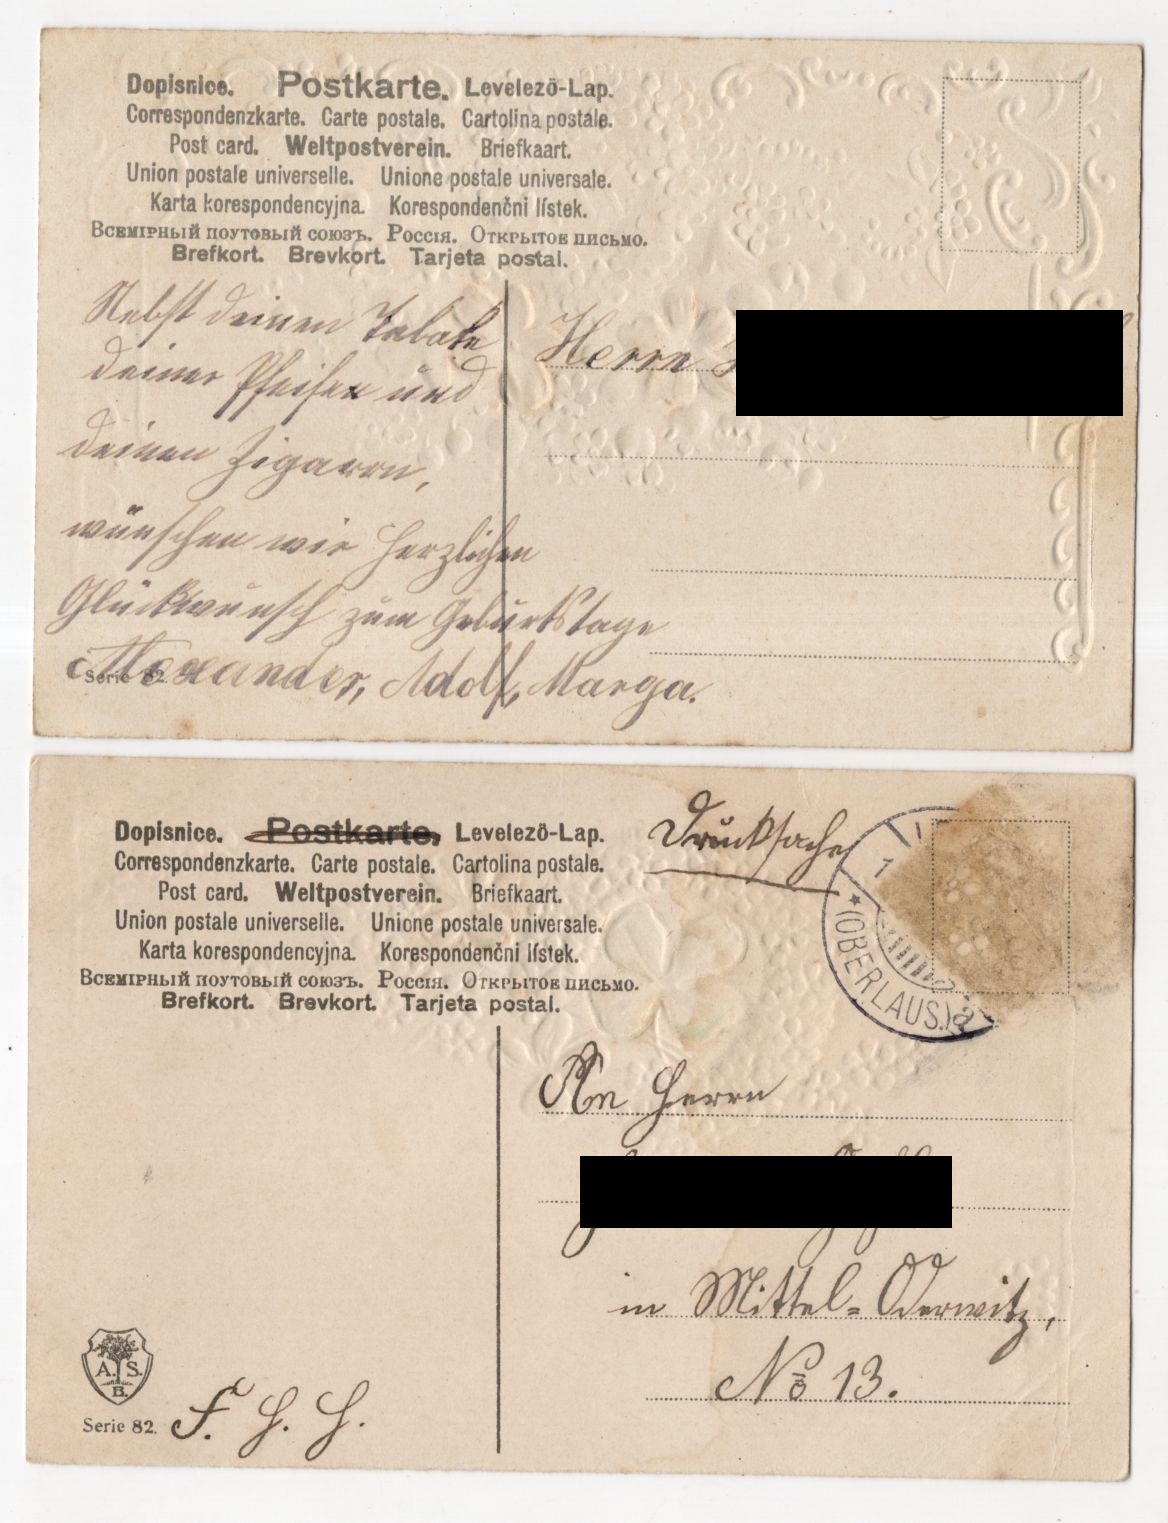 Dopisnice. Postkarte. Levelező-Lap.
Correspondenzkarte. Carte postale. Cartolina postale.
Post card. Weltpostverein. Briefkaart.
Union postale universelle. Unione postale universale.
Karta korespondencyjna. Korespondenčni lístek.
Всемірный поутовый союзъ. Россія. Открытое письмо.
Brefkort. Brevkort. Tarjeta postal.
Nebst deinen Tabake
deiner Pfeifen und
deinen Zigarrn,
wünschen wir herzlichen
Glückwunsch zum Geburtstage
Alexander, Adolf, Marga.
Serie 82.
Herrn
Dopisnice. Postkarte. Levelező-Lap.
Correspondenzkarte. Carte postale. Cartolina postale.
Post card. Weltpostverein. Briefkaart.
Union postale universelle. Unione postale universale.
Karta korespondencyjna. Korespondenčni lístek.
Всемірный поутовый союзъ. Россія. Открытое письмо.
Brefkort. Brevkort. Tarjeta postal.
Drucksache
1
* (OBERLAUS.) a
An Herrn
in Mittel=Oderwitz,
No 13.
A. S.
B.
Serie 82.
F. H. H.